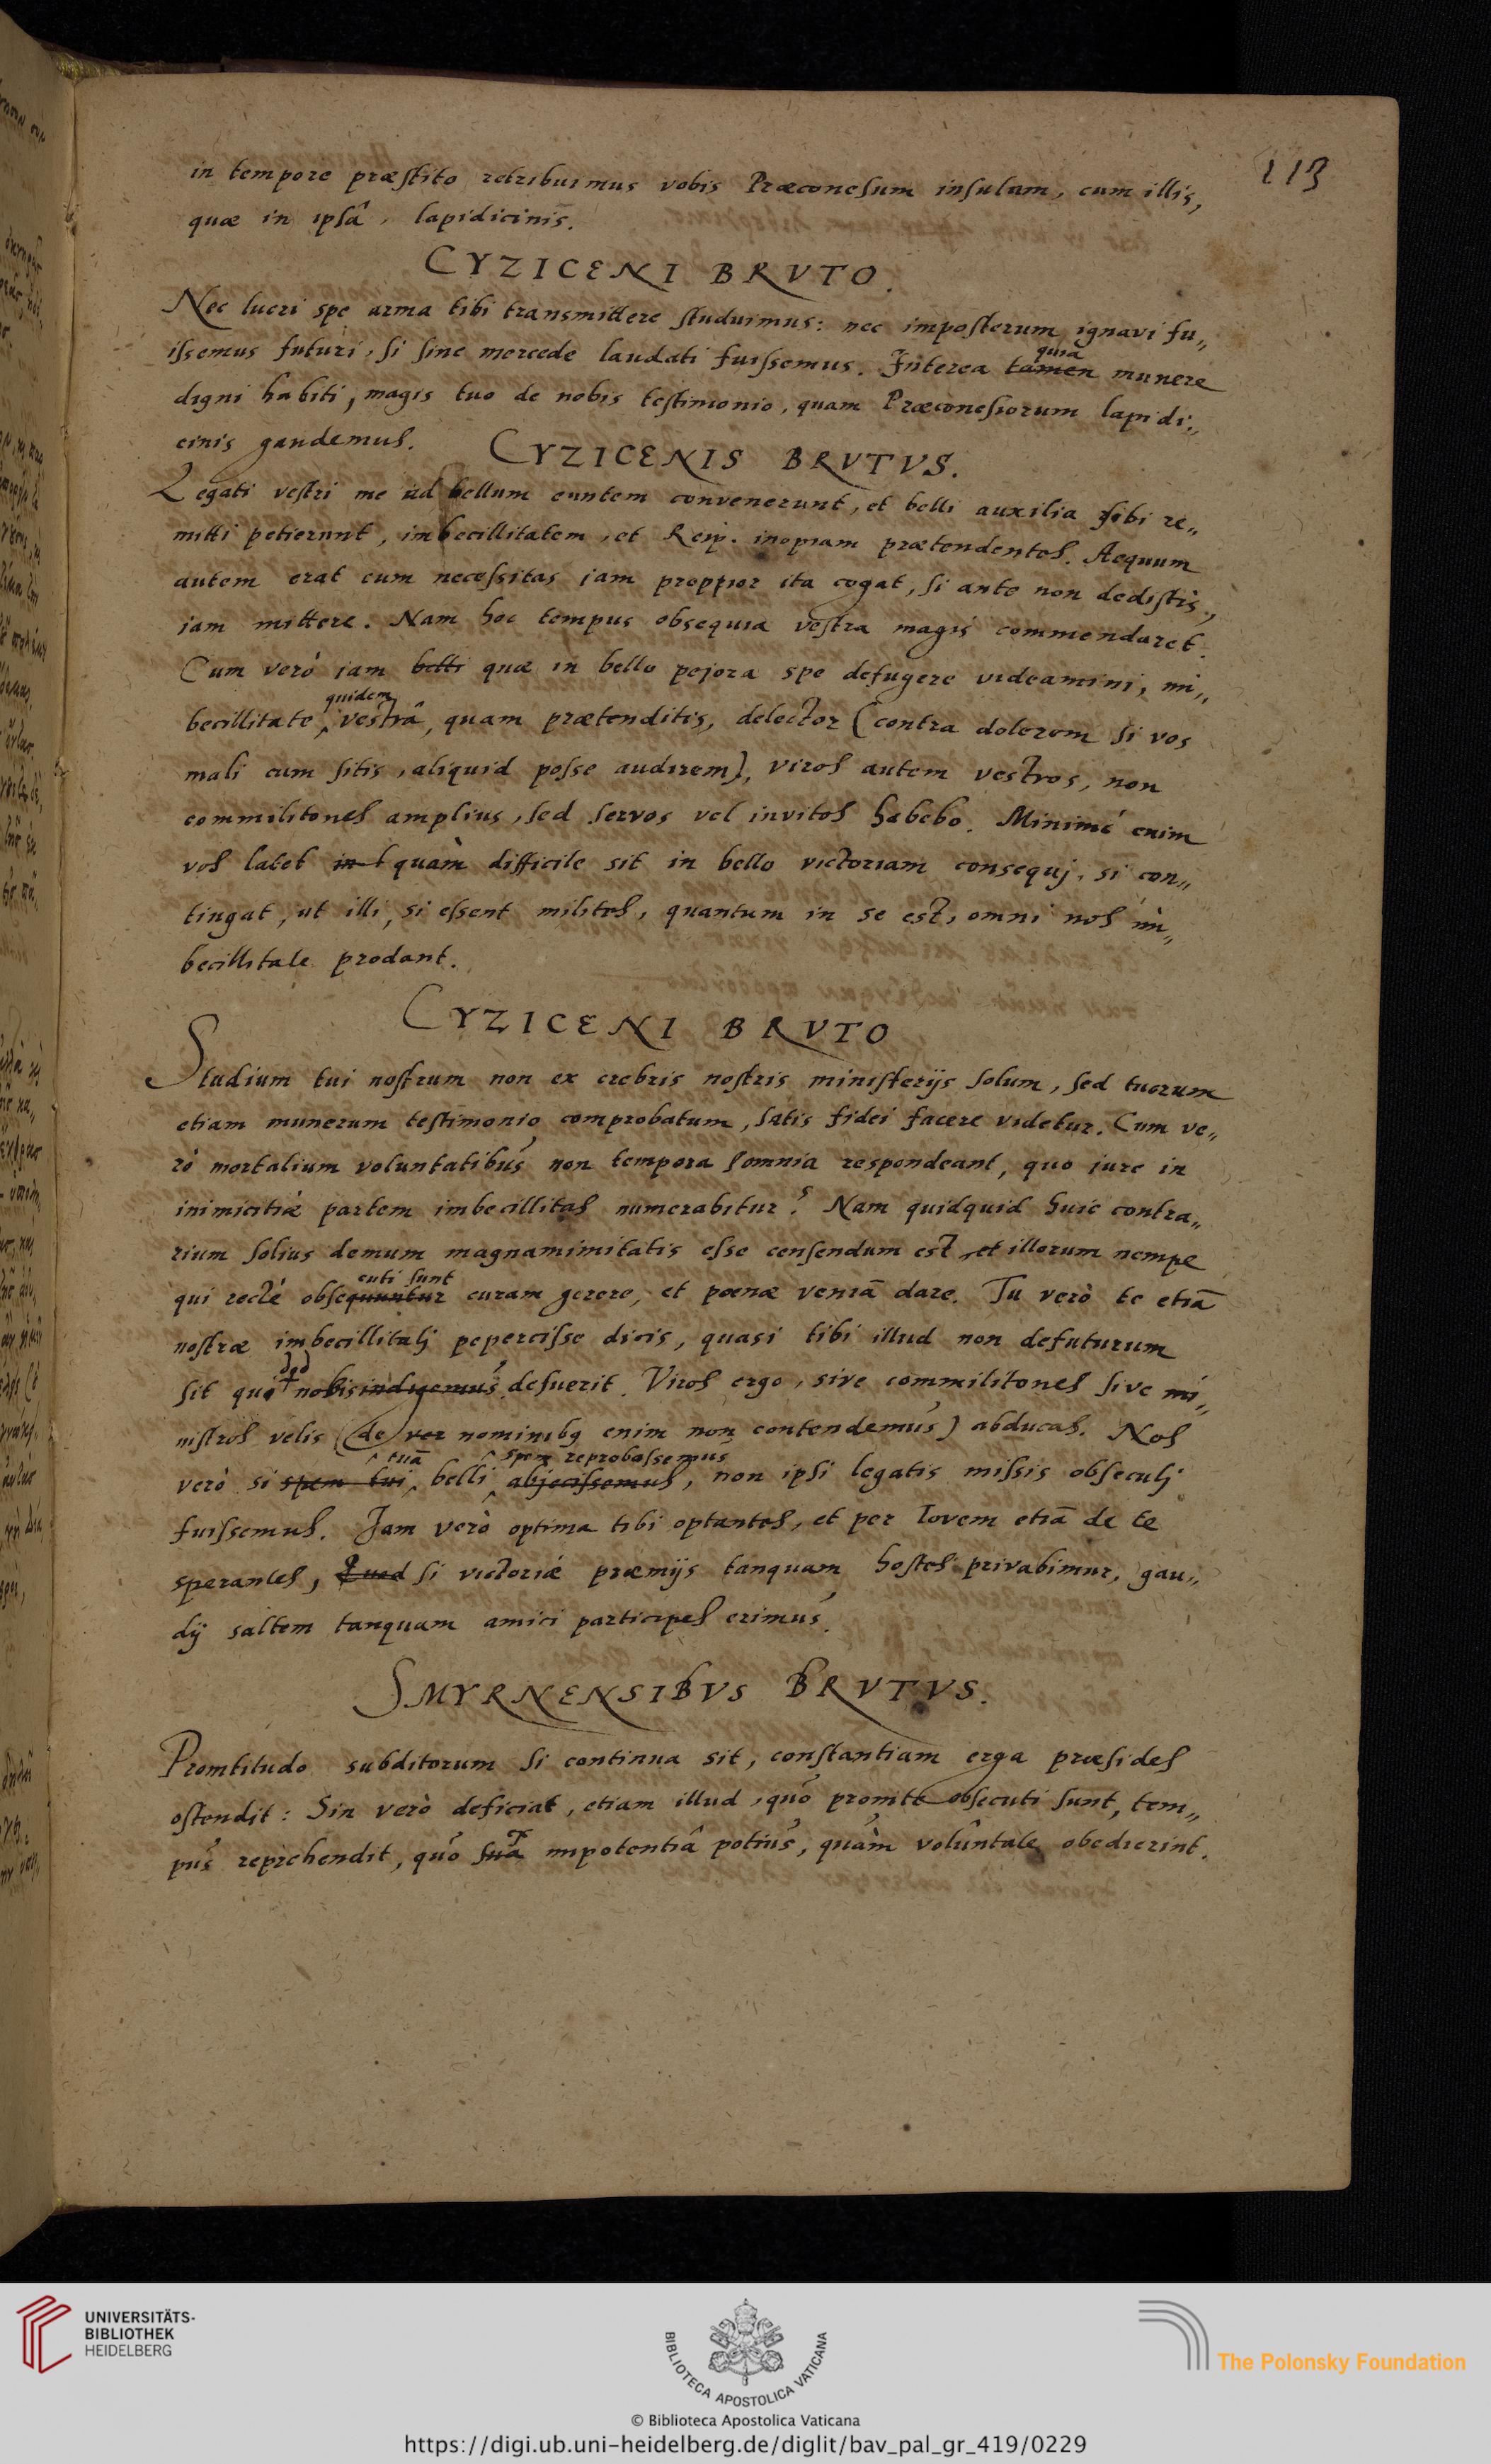 113
in tempore præstito retribuimus vobis Præconesum insulam, cum illis,
quæ in ipsâ, lapidicinis.
CYZICENI BRVTO.
Nec lucri spe arma tibi transmittere studuimus: nec imposterum ignavi fu„
issemus futuri, si sine mercede laudati fuissemus. Interea tamen quia munere
digni habiti, magis tuo de nobis testimonio, quam Præconesiorum lapidi„
cinis gaudemus. CYZICENIS BRVTVS.
Legati vestri me ad bellum euntem convenerunt, et belli auxilia sibi re„
mitti petierunt, imbecillitatem, et Reip. inopiam prætendentes. Aequum
autem erat cum necessitas jam proppior ita cogat, si ante non dedistis,
jam mittere. Nam hoc tempus obsequia vestra magis commendaret.
Cum verò jam belli quæ in bello pejora spe defugere videamini, im„
becillitate quidem vestrâ, quam prætenditis, delector (contra dolerem si vos
mali cum sitis, aliquid posse audirem), viros autem vestros, non
commilitones amplius, sed servos vel invitos habebo. Minimé enim
vos latet quàm difficile sit in bello victoriam consequj, si con„
tingat, ut illi, si essent milites, quantum in se est, omni nos im„
becillitate prodant.
CYZICENI BRVTO
Studium tui nostrum non ex crebris nostris ministerijs solum, sed tuorum
etiam munerum testimonio comprobatum, satis fidei facere videtur. Cum ve„
rò mortalium voluntatibus non tempora somnia respondeant, quo jure in
inimicitiæ partem imbecillitas numerabitur? Nam quidquid huic contra„
rium solius demum magnamimitatis esse censendum est, et illorum nempe
qui recté obsequuntur cuti sunt curam gerere, et pœnæ veniā dare. Tu verò te etiā
nostræ imbecillitatj pepercisse dicis, quasi tibi illud non defuturum
sit quo nobis indigemus defuerit. Viros ergo, sive commilitones sive mi„
nistros velis (de ver nominibq enim non contendemus) abducas. Nos
verò si spem tui tuā belli spem reprobassemus abjecissemus, non ipsi legatis missis obsecutj
fuissemus. Jam verò optima tibi optantes, et per Iovem etiā de te
sperantes, Quod si victoriæ præmijs tanquam hostes privabimur, gau„
dij saltem tanquam amici participes erimus.
SMYRNENSIBVS BRVTVS.
Promtitudo subditorum si continua sit, constantiam erga præsides
ostendit: Sin verò deficiat, etiam illud, quo promte obsecuti sunt, tem„
pus reprehendit, quo sua impotentiâ potius, quàm voluntate obedierint.
UNIVERSITÄTS-
BIBLIOTHEK
HEIDELBERG
BIBLIOTECA APOSTOLICA VATICANA
The Polonsky Foundation
© Biblioteca Apostolica Vaticana
https://digi.ub.uni-heidelberg.de/diglit/bav_pal_gr_419/0229